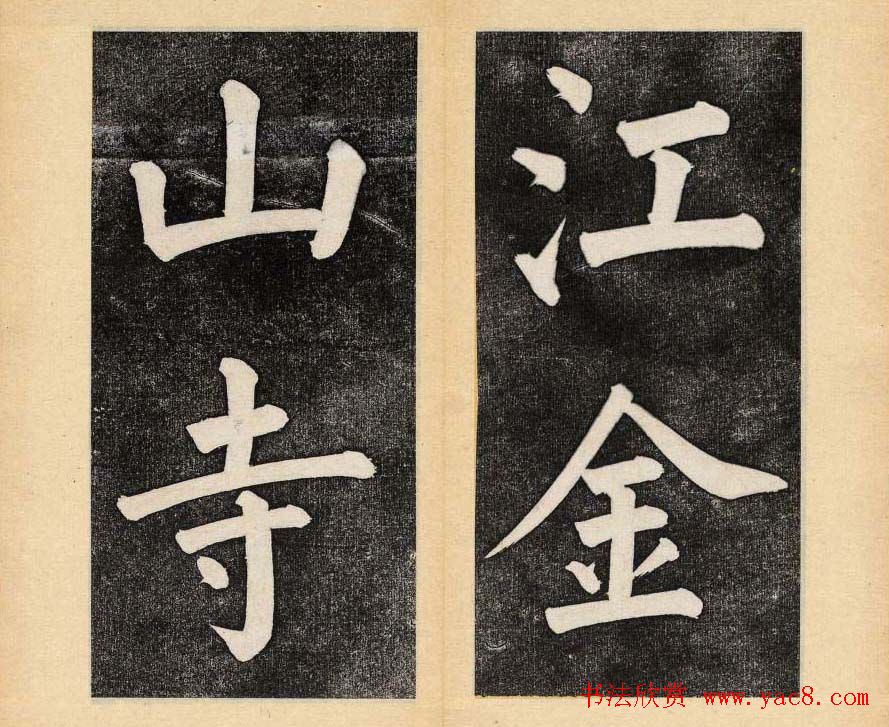 江金
山寺
书法欣赏 www.yac8.com